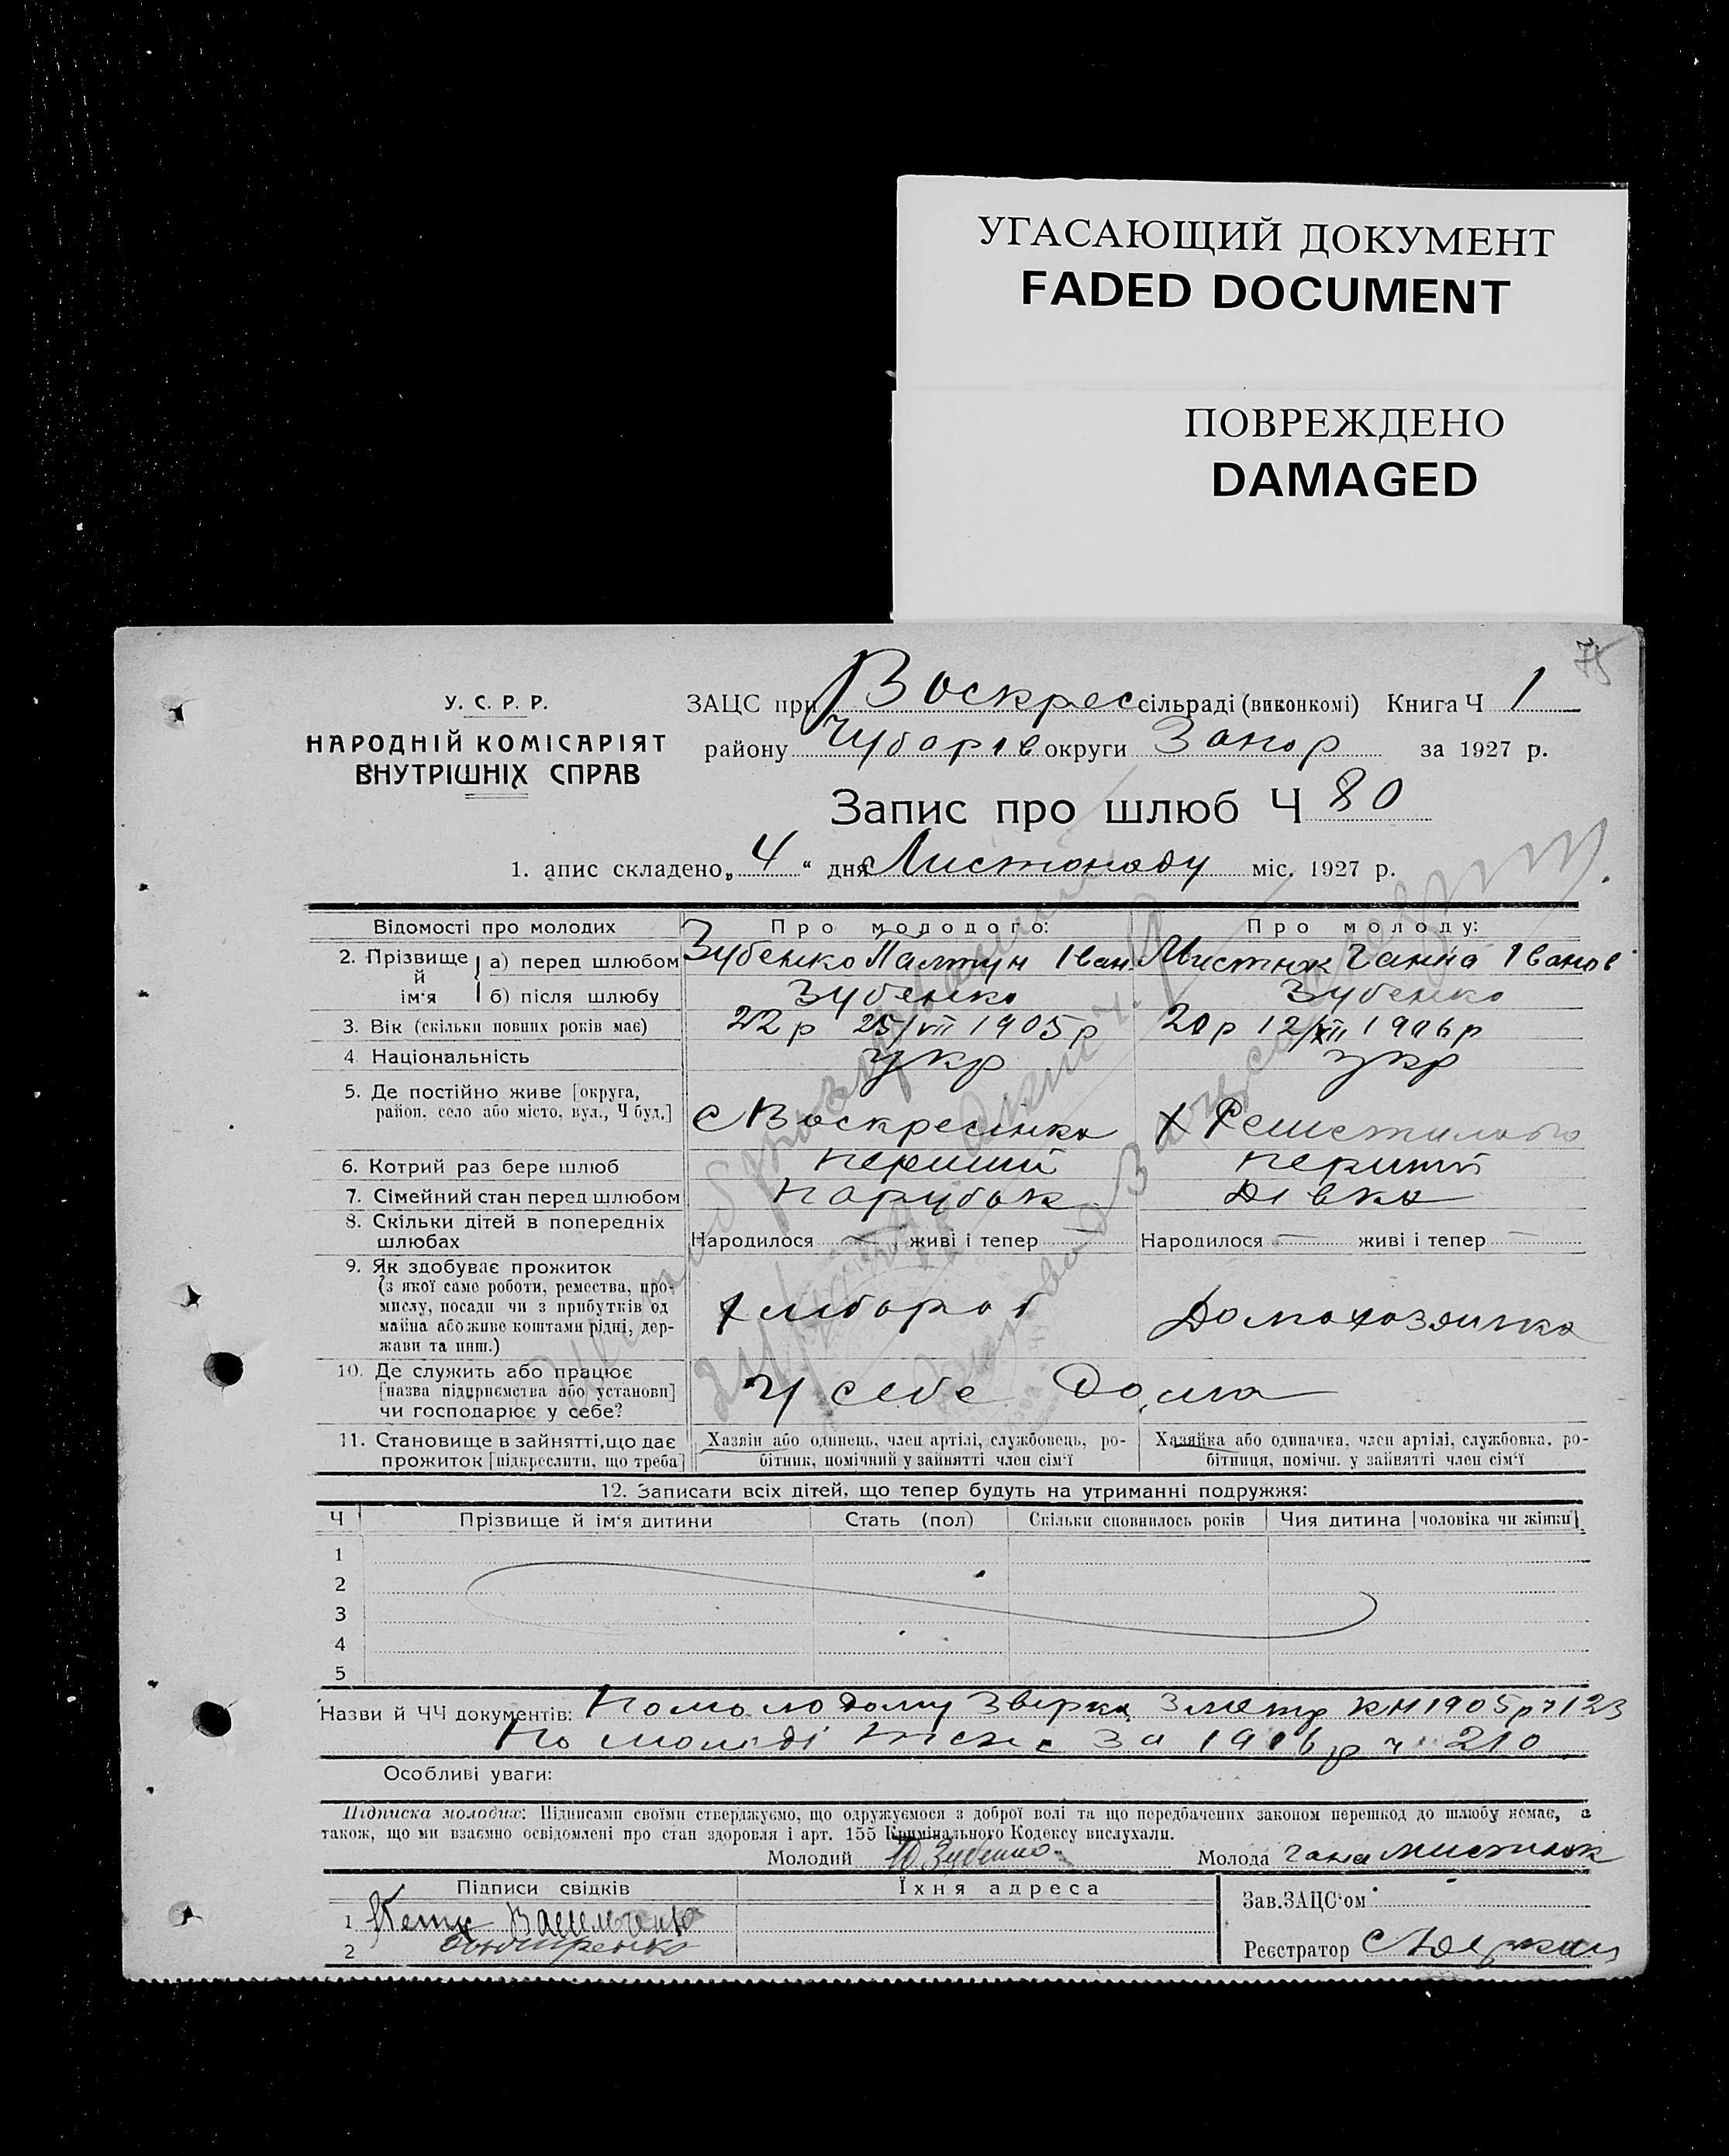 УГАСАЮЩИЙ ДОКУМЕНТ
FADED DOCUMENT
ПОВРЕЖДЕНО
DAMAGED
75
У. С. Р. Р.
НАРОДНІЙ КОМІСАРІЯТ
ВНУТРІШНІХ СПРАВ
ЗАЦС при Воскрес сільраді (виконкомі) Книга Ч 1
району Чубарів округи Запор за 1927 р.
Запис про шлюб Ч 80
1. апис складено „4“ дня Листопаду міс. 1927 р.
Відомості про молодих Про молодого: Про молоду:
2. Прізвище й ім'я а) перед шлюбом Зубенко Іван Мистюк Ганна Іванов
б) після шлюбу Зубенко Зубенко
3. Вік (скільки повних років має) 22 р 25/VII 1905 р 20 р 12/XII 1906 р
4 Національність укр укр
5. Де постійно живе [округа,
район, село або місто, вул., Ч буд.] С Воскресенка Х
6. Котрий раз бере шлюб перший перший
7. Сімейний стан перед шлюбом парубок дівка
8. Скільки дітей в попередніх
шлюбах Народилося — живі і тепер Народилося — живі і тепер —
9. Як здобуває прожиток
(з якої саме роботи, ремества, про-
мислу, посади чи з прибутків од
майна або живе коштами рідні, дер-
жави та инш.) хлібороб Домохозяика
10. Де служить або працює
[назва підприємства або установи]
чи господарює у себе? У себе Дома
11. Становище в зайнятті, що дає
прожиток [підкреслити, що треба]
Хазяїн або одинець, член артілі, службовець, ро-
бітник, помічний у зайнятті член сім'ї
Хазяйка або одиначка, член артілі, службовка, ро-
бітниця, помічн. у зайнятті член сім'ї
12. Записати всіх дітей, що тепер будуть на утриманні подружжя:
Ч Прізвище й ім'я дитини Стать (пол) Скільки сповнилось років Чия дитина [чоловіка чи жінки]
1
2
3
4
5
Назви й ЧЧ документів: По молодому звірка з метр кн 1905 р ч 123
По молоді за 1906 р ч 210
Особливі уваги:
Підписка молодих: Підписами своїми стверджуємо, що одружуємося з доброї волі та що передбачених законом перешкод до шлюбу немає, а
також, що ми взаємно освідомлені про стан здоровля і арт. 155 Кримінального Кодексу вислухали.
Молодий Зубенко Молода Гана Мистюк
Підписи свідків Їхня адреса Зав. ЗАЦС'ом
1
2
Реєстратор